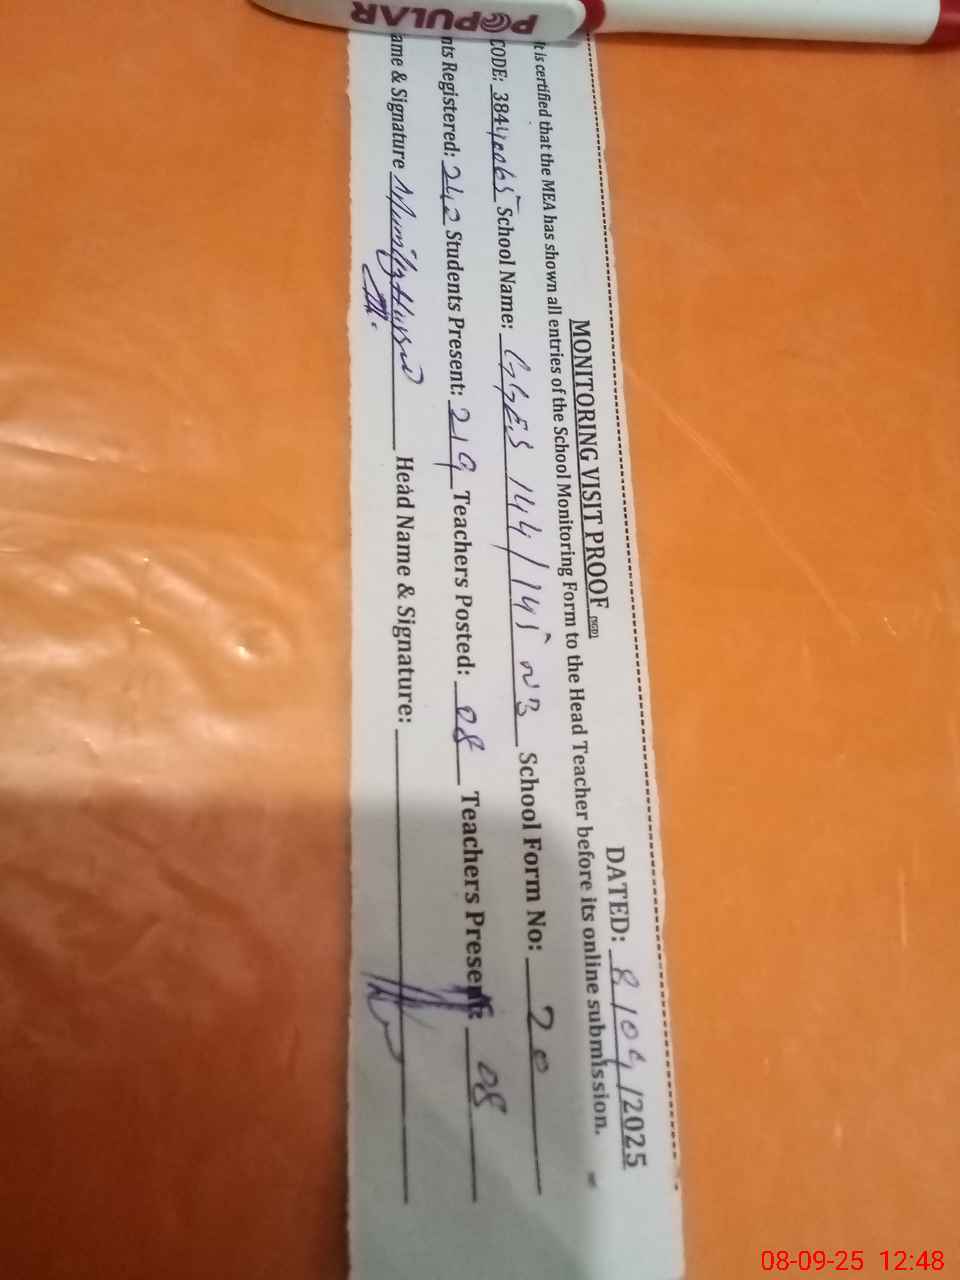 POPULAR
MONITORING VISIT PROOF
DATED: 8/09/2025
It is certified that the MEA has shown all entries of the School Monitoring Form to the Head Teacher before its online submission.
CODE: 38440065 School Name: GGES 144/145 NB School Form No: 20
nts Registered: 242 Students Present: 219 Teachers Posted: 08 Teachers Present: 08
ame & Signature Head Name & Signature:
08-09-25 12:48